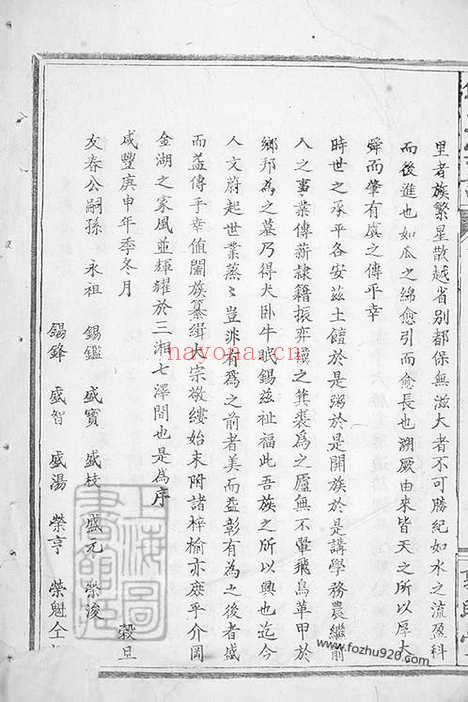 里者族繁星散越省别都保無滋大者不可勝紀如水之流盈科
而後進也如瓜之綿愈引而愈長也溯厥由來皆天之所以厚大
舜而肇有虞之傳乎幸
時世之承平各安兹土饘於是粥於是開族於是講學務農繼前
人之事業傳薪隸籍振弈禩之箕裘為之廬無不翬飛鳥革甲於
鄉邦為之墓乃得犬卧牛眠錫兹祉福此吾族之所以興也迄今
人文蔚起世業蒸蒸豈非有為之前者美而益彰有為之後者盛
而益傳乎幸值闔族纂緝大宗譜敬縷始末附諸梓榆亦庶乎介岡
金湖之家風並輝耀於三湘七澤間也是為序
咸豐庚申年季冬月 穀旦
友春公嗣孫 永祖 錫鑑 盛寶 盛枝 盛元 榮浚
錫鋒 盛智 盛湯 榮亨 榮魁 仝
上海圖書館藏
hayona.cn
www.fozhu920.com